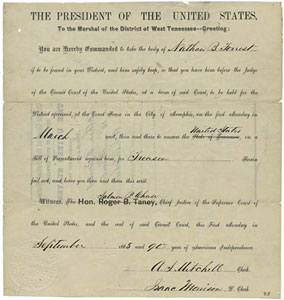 THE PRESIDENT OF THE UNITED STATES,
To the Marshal of the District of West Tennessee--Greeting:
You are Hereby Commanded to take the body of Nathan B. Forrest
if to be found in your District, and him safely keep, so that you have him before the Judge
of the Circuit Court of the United States, at a term of said Court, to be held for the
District aforesaid, at the Court House in the City of Memphis, on the first Monday in
March next, then and there to answer the United States
State of Tennessee, on a
Bill of Indictment against him, for Treason Herein
fail not, and have you then and there this writ
Salmon P. Chase
Witness, The Hon. Roger B. Taney, Chief Justice of the Supreme Court of the
United States, and the seal of said Circuit Court, this First Monday in
September 1865 and 90 year of American Independence
A. S. Mitchell Clerk
Isaac D. Clerk